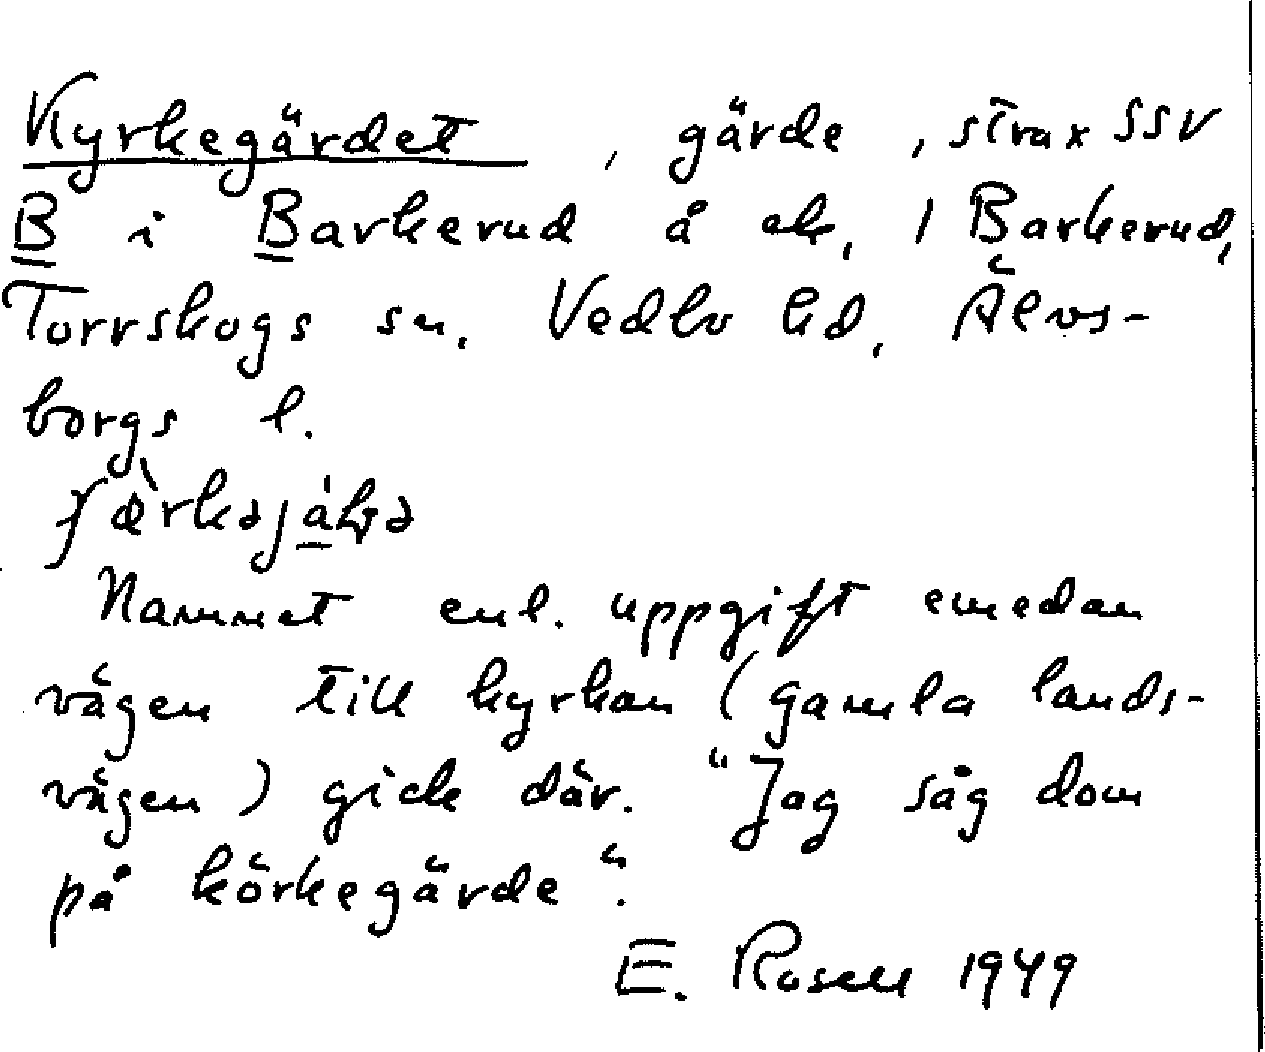 Kyrkegärdet, gärde, strax SSV
B i Barkerud å ek. 1 Barkerud,
Torrskogs sn. Vedbo hd, Älvs-
borgs l.
Namnet enl. uppgift emedan
vägen till kyrkan (gamla lands-
vägen) gick där. "Jag såg dom
på körkegärde".
E. Rosell 1949